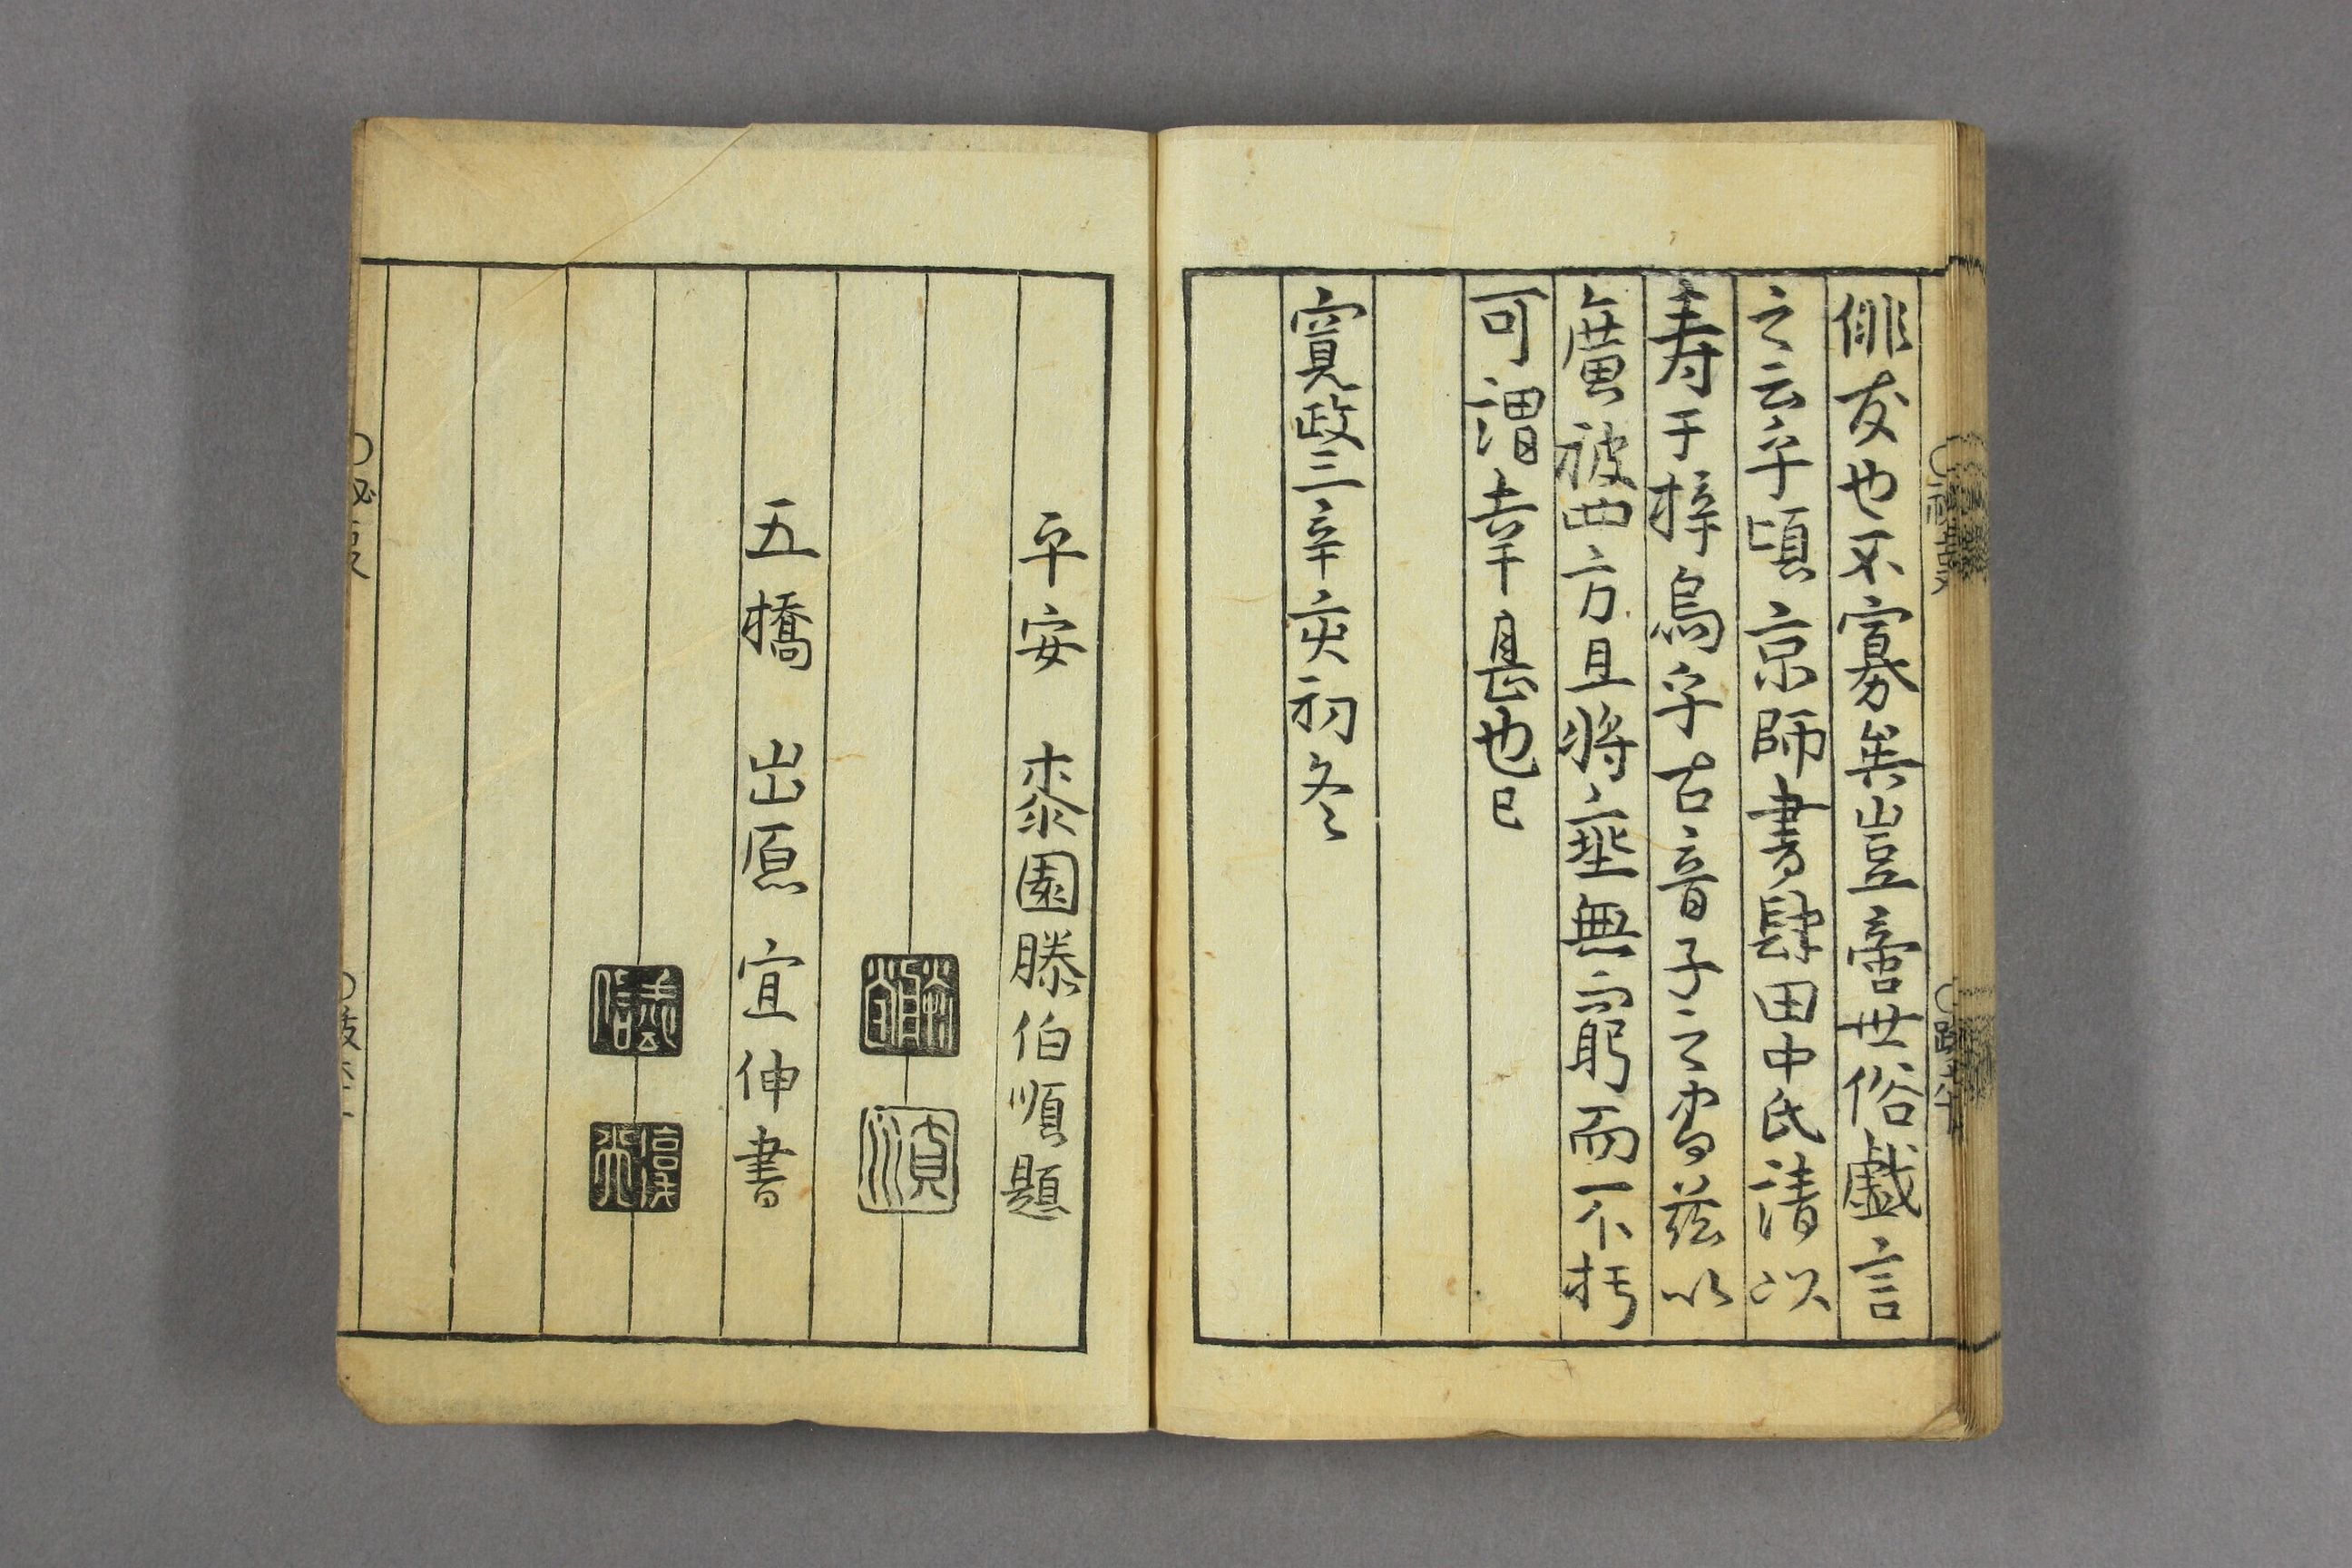 俳友也不寡矣豈啻世俗戯言
之云乎頃京師書肆田中氏請以
寿于梓烏乎古音子之書茲以
廣被四方且將垂無窮而不朽
可謂幸甚也已
寛政三辛亥初冬
平安 黍園滕伯順題
五橋 出原宜伸書